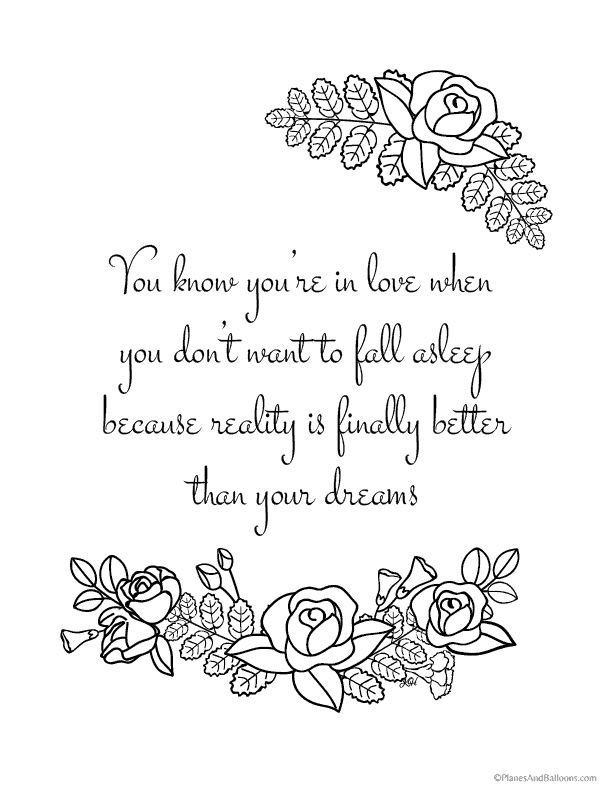 You know you're in love when
you don't want to fall asleep
because reality is finally better
than your dreams
©PlanesAndBalloons.com